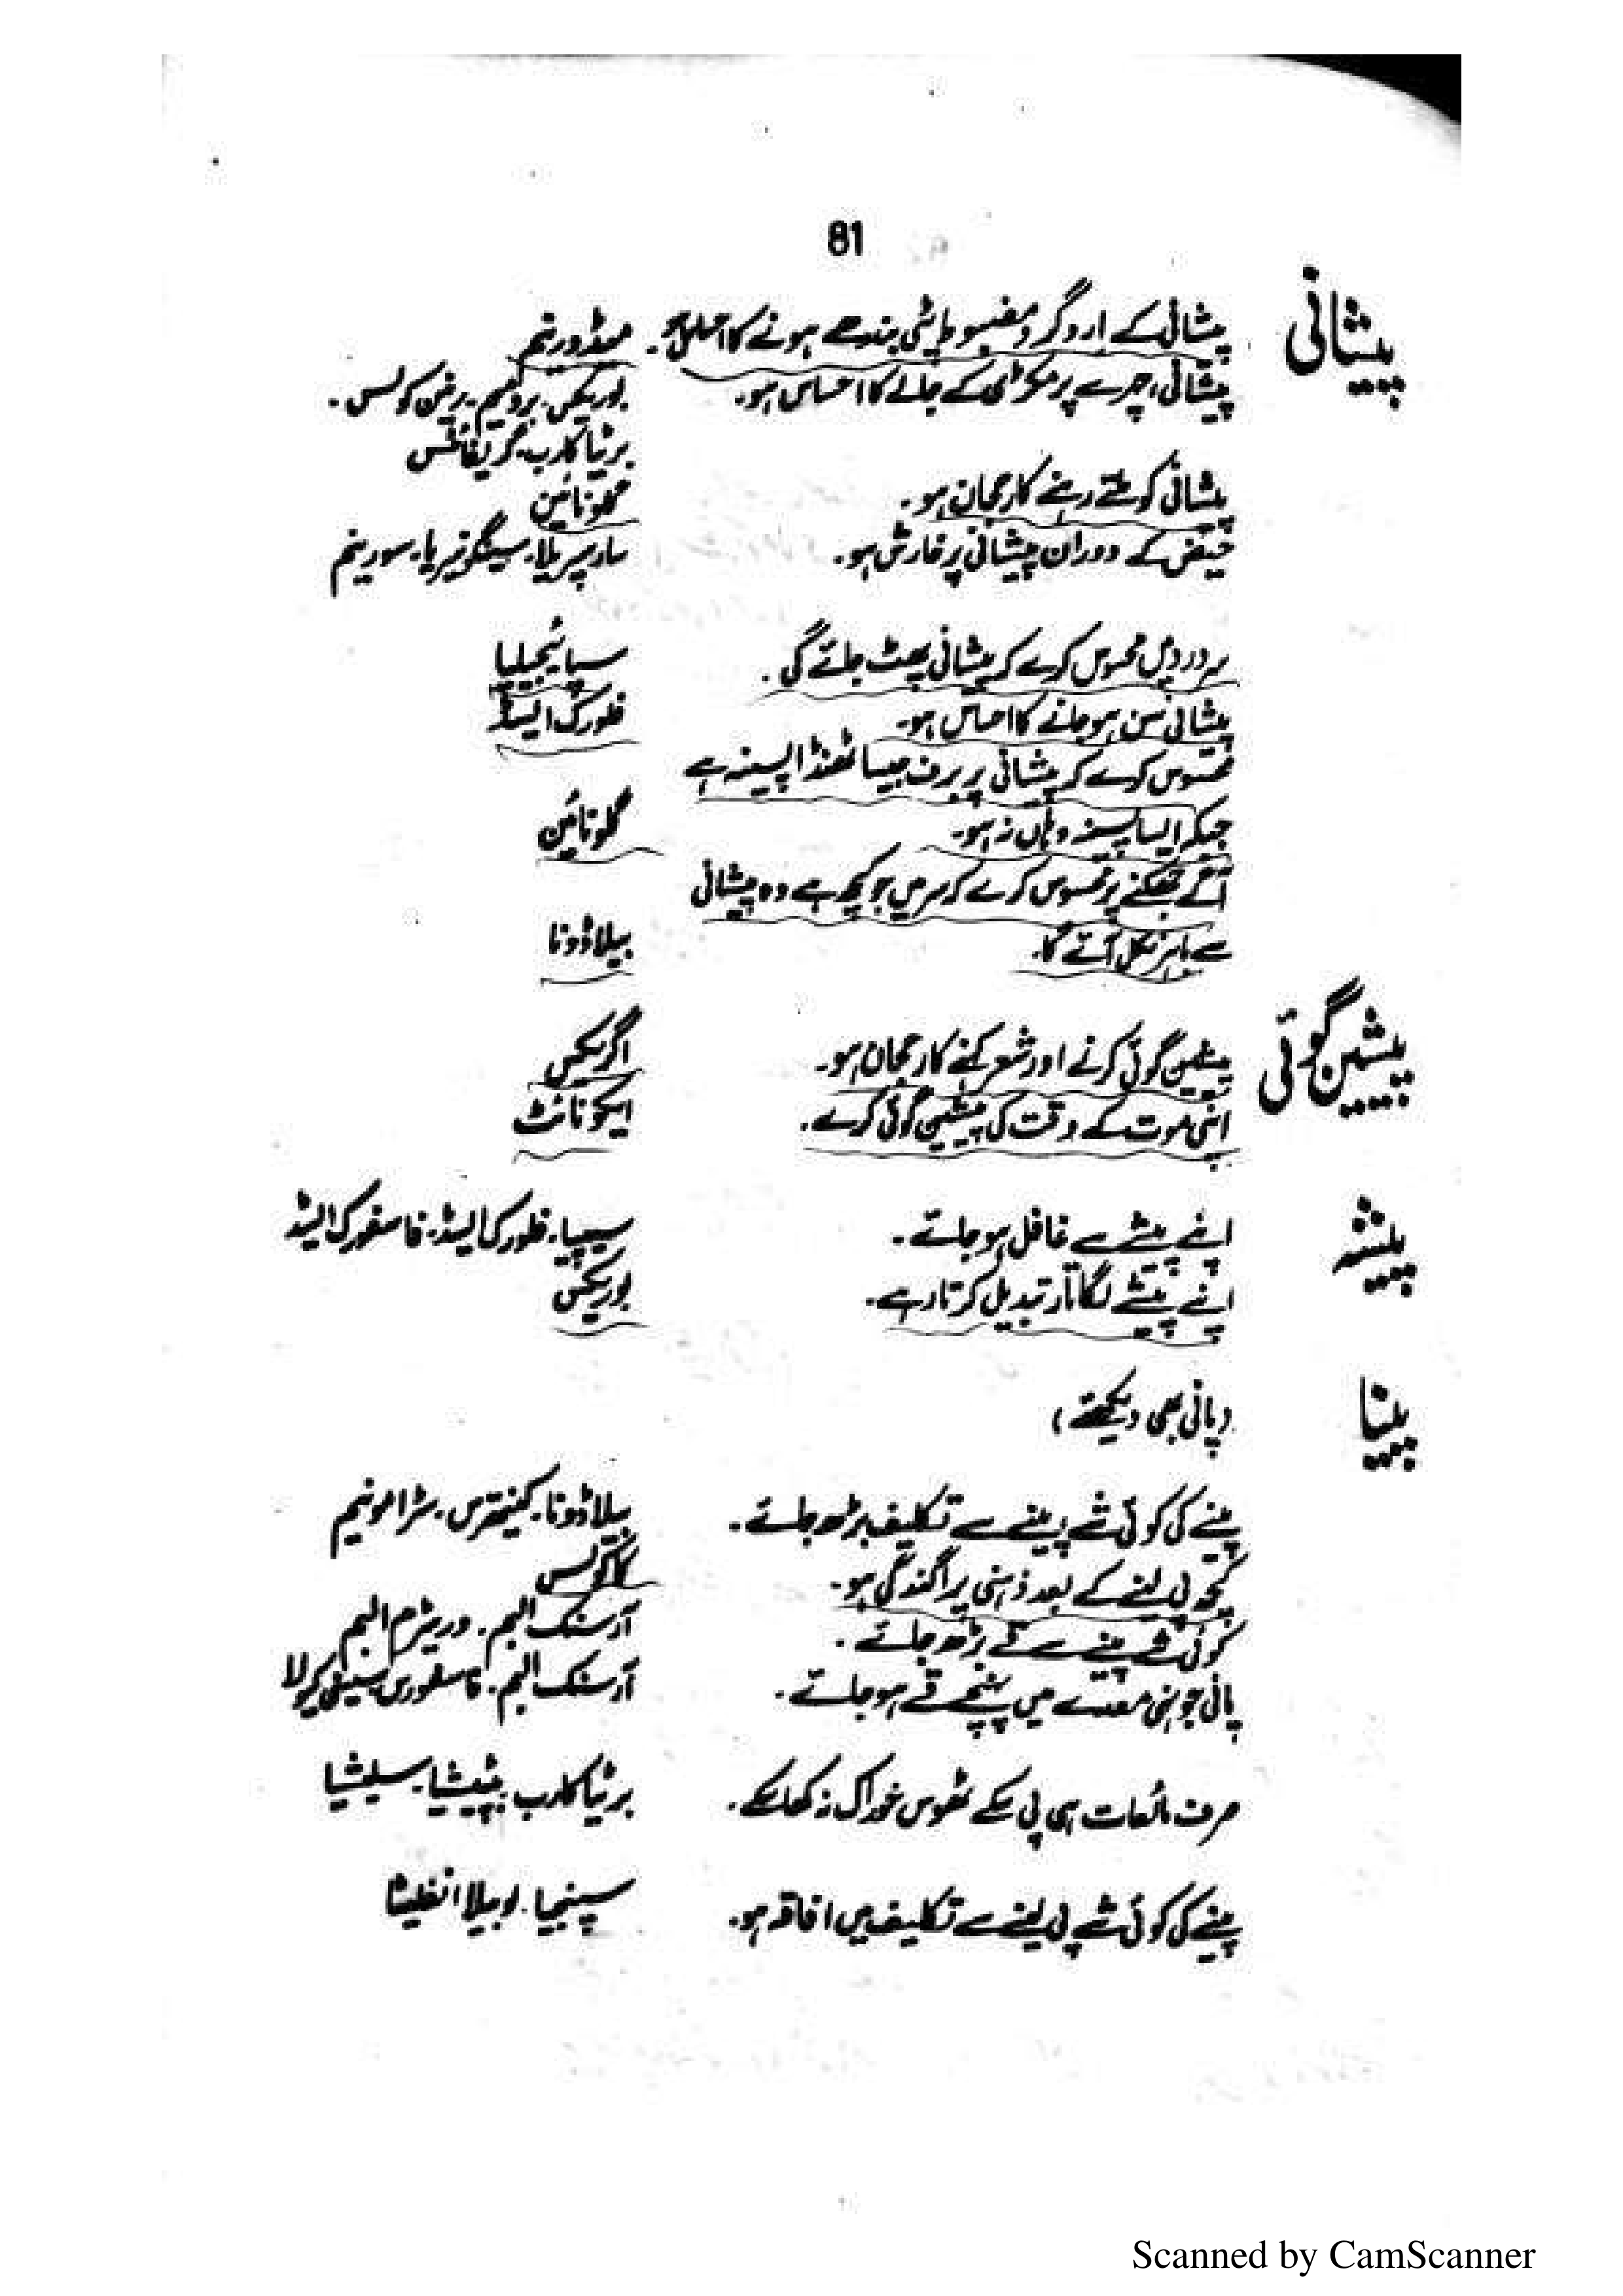 81
پیشانی
پیشانی کے اردگرد مضبوط پٹی بندھے ہونے کا احساس ہو۔
پیشانی، چہرے پر مکڑی کے جالے کا احساس ہو۔ بوریکس۔ برومیم۔
برٹیا کارب۔ گریفائٹس
پیشانی کو ملتے رہنے کا رجحان ہو۔ گلونائین
حیض کے دوران پیشانی پر خارش ہو۔ سارسپریلا۔ سینگونیریا۔ سورینم
سر درد میں محسوس کرے کہ پیشانی پھٹ جائے گی۔ سپائیجیلیا
پیشانی سن ہو جانے کا احساس ہو۔ فلورک ایسڈ
محسوس کرے کہ پیشانی پر برف جیسا ٹھنڈا پسینہ ہے
جبکہ ایسا پسینہ وہاں نہ ہو۔ گلونائین
آگے جھکنے پر محسوس کرے کہ سر میں جو کچھ ہے وہ پیشانی
سے باہر نکل آئے گا۔ بیلاڈونا
پیشین گوئی
پیشین گوئی کرنے اور شعر کہنے کا رجحان ہو۔ اگریکس
اپنی موت کے وقت کی پیشین گوئی کرے۔ ایکونائٹ
پیشہ
اپنے پیشے سے غافل ہو جائے۔ سیپیا۔ فلورک ایسڈ۔ فاسفورک ایسڈ
اپنے پیشے لگاتار تبدیل کرتا رہے۔ بوریکس
پینا
(پانی بھی دیکھئے)
پینے کی کوئی شے پینے سے تکلیف بڑھ جائے۔ بیلاڈونا۔ کینتھرس۔ سٹرامونیم
کچھ پی لینے کے بعد ذہنی پراگندگی ہو۔ کاکولس
کوئی شے پینے سے قے بڑھ جائے۔ آرسنک البم۔ وریٹرم البم
پانی جونہی معدے میں پہنچے قے ہو جائے۔ آرسنک البم۔ فاسفورس۔
صرف مائعات ہی پی سکے ٹھوس خوراک نہ کھا سکے۔ برٹیا کارب۔ پپٹیشیا۔ سیلیشیا
پینے کی کوئی شے پی لینے سے تکلیف میں افاقہ ہو۔ سپنجیا۔ لوبیلا انفلیٹا
Scanned by CamScanner